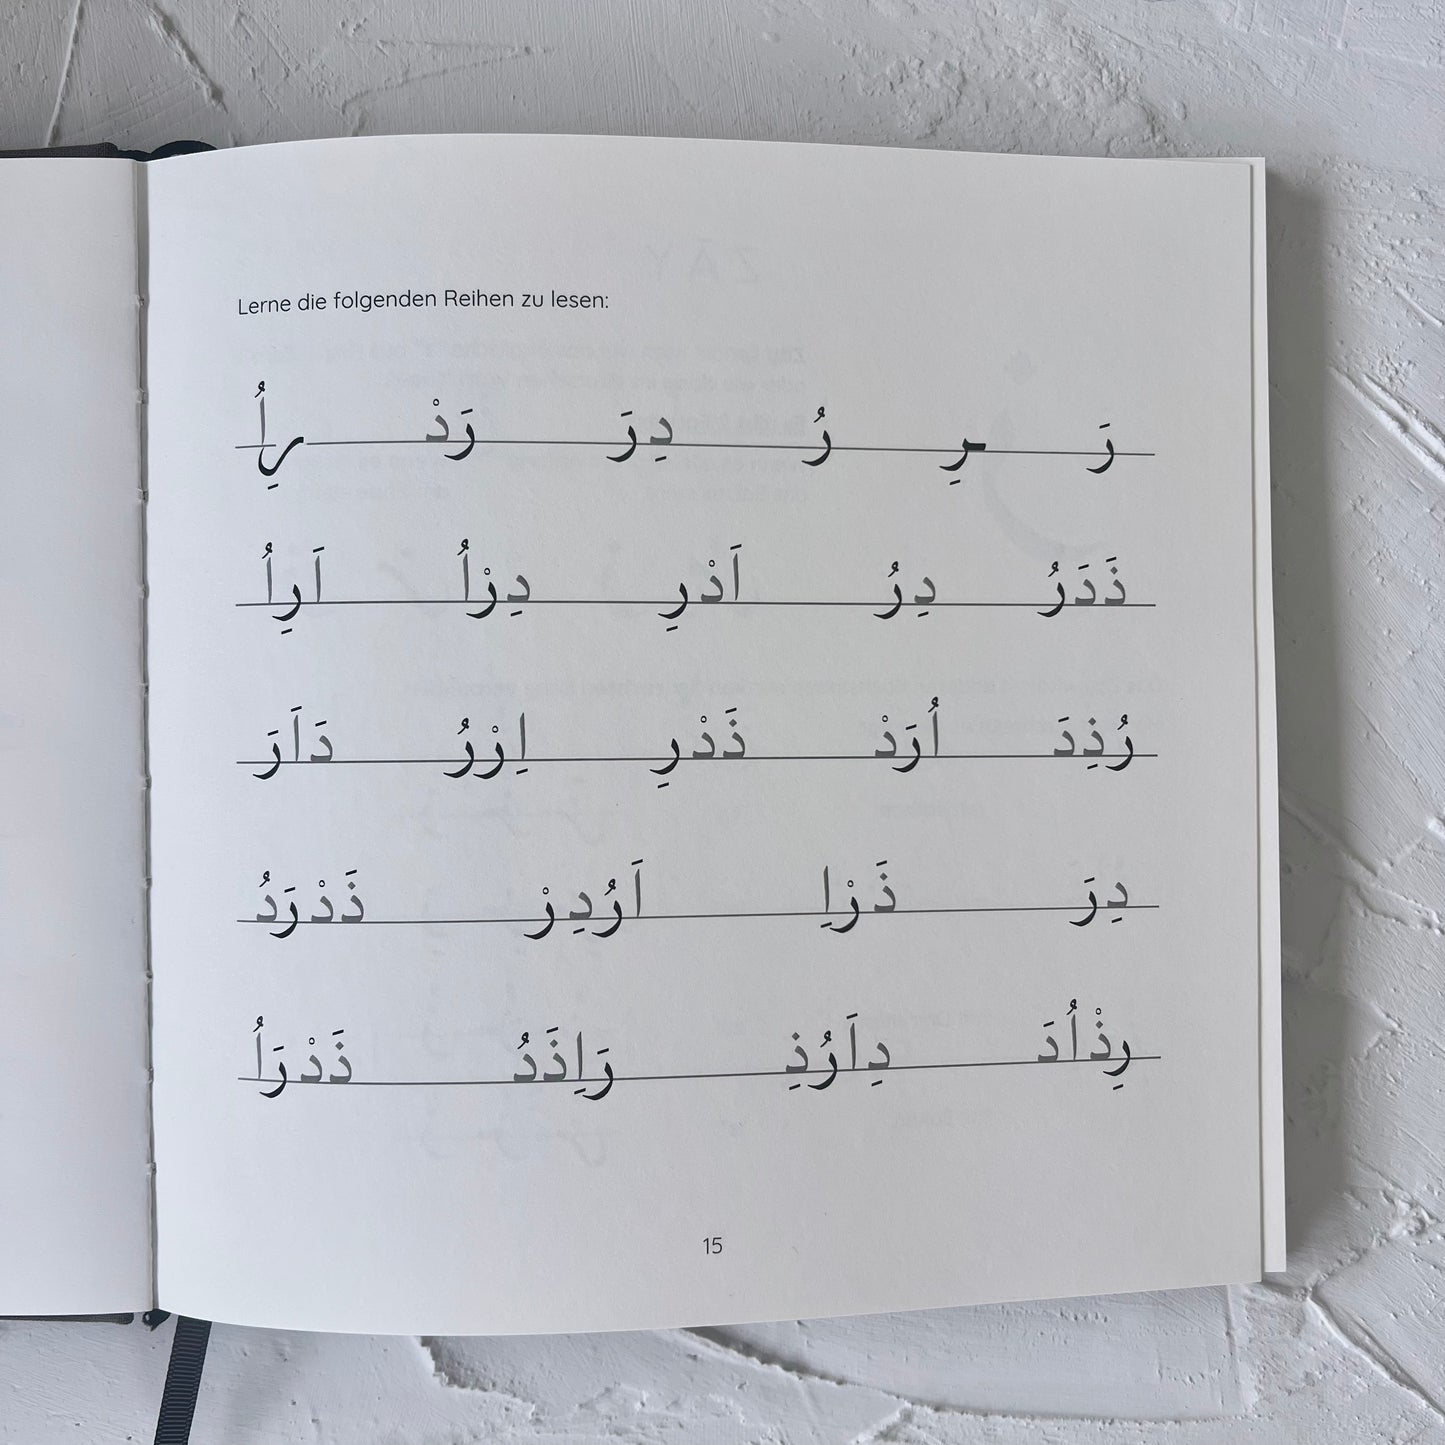 Lerne die folgenden Reihen zu lesen:
رَ ـرِ رُ دِرَ رَدْ رِأُ
ذَدَرُ دِرُ اَدْرِ دِرْأُ اَرِأُ
رُذِدَ اُرَدْ ذَدْرِ اِرْرُ دَاَرَ
دِرَ ذَرْاِ اَرُدِرْ ذَدْرَدُ
رِذْاُدَ دِاَرُذِ رَاِذَدُ ذَدْرَاُ
15